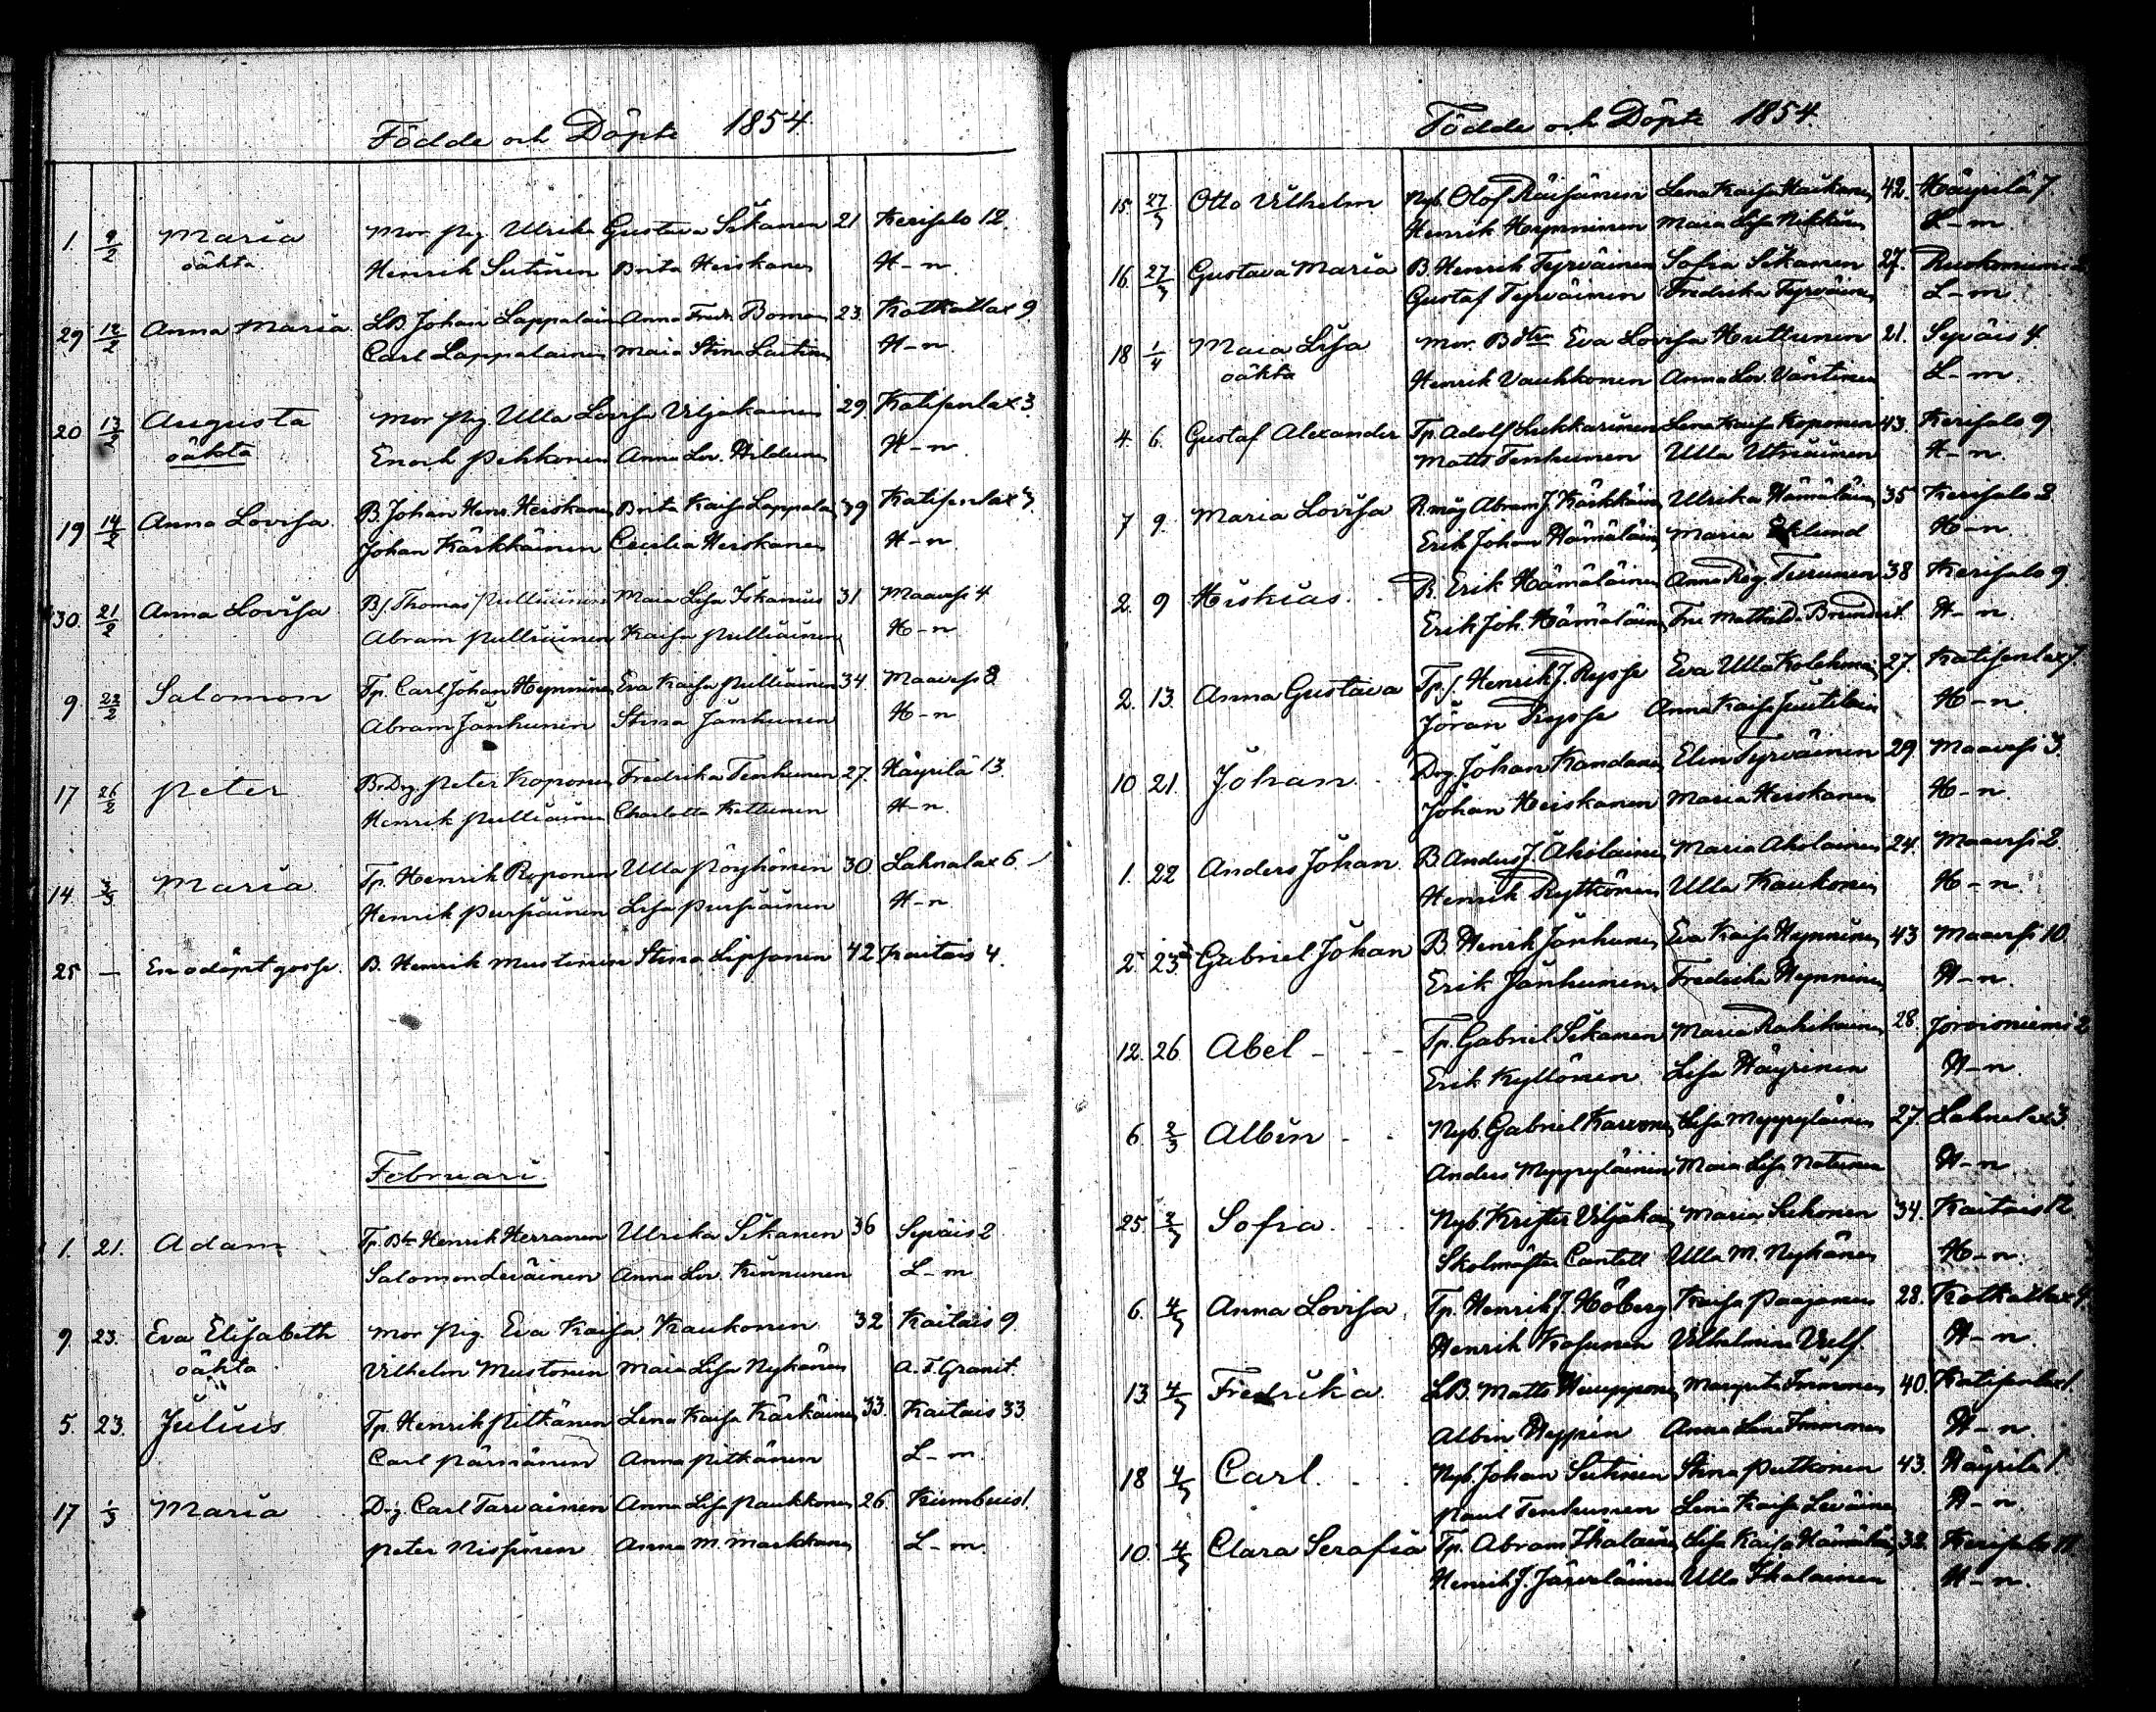 Födde och Döpte 1854.
1. 9/2 Maria Mor. Pig. Ulrika Gustava Sikanen 21 Kerisalo 12.
oäkta Henrik Sutinen Brita Heiskanen H-n.
29 12/2 Anna Maria LB. Johan Lappalain Anna Fredr. Boman 23. Kotkatlax 9
Carl Lappalainen Maia Stina H-n
20 13/2 Augusta Mor Pig. Ulla Lovisa Viljakainen 29 Katisenlax 3.
oäkta Enoch Pehkonen Anna Lov. H-n
19 14/2 Anna Lovisa B. Johan Henr. Heiskanen Brita Kaisa Lappalai 39 Katisenlax 3
Johan Kärkkäinen Cecilia Heiskanen H-n
30. 21/2 Anna Lovisa Bs. Thomas Pulliainen Maia Lisa 31 Maavesi 4
Abram Pulliainen Kaisa Pulliainen H-n
9. 22/2 Salomon Tp. Carl Johan Hynninen Eva Kaisa Pulliainen 34 Maavesi 8.
Abram Jänhunen Stina Jänhunen H-n
17 26/2 Peter Peter Koponen Fredrika Tenhunen 27. Häyrilä 13.
Henrik Pulliainen Charlotta Kettunen H-n.
14. 3/3 Maria Tp. Henrik Roponen Ulla Pöyhönen 30 Lahnalax 6
Henrik Pursiainen Lisa Pursiainen H-n
25 - En odöpt gosse. B. Henrik Mustonen Stina Lipsanen 42 Kaitais 4.
Februari.
1. 21. Adam Henrik Herranen Ulrika Sikanen 36 Sepäis 2
Salomon Leväinen Anna Lov. Kinnunen L-m
9. 23. Eva Elisabeth Mor Pig. Eva Kaisa Kaukonen 32 Kaitais 9.
oäkta Vilhelm Mustonen Maia Lisa Nykänen A. F. Granit.
5. 23. Julius Tp. Henrik Pitkänen Lena Kaisa Kärkäinen 33. Kaitais 33.
Carl Pärnänen Anna Pitkänen L-m.
17 1/3 Maria Drg. Carl Tarvainen Anna Lisa Paukkonen 26.
Peter Nissinen Anna M. Markkanen L-m.
Födde och Döpte 1854.
15. 27/3 Otto Vilhelm Nyb. Olof Räisänen Lena Kaisa 42. Häyrilä 7
Henrik Hynninen Maia Lisa L-m
16. 27/3 Gustava Maria B. Henrik Tyrväinen Sofia Sikanen 27.
Gustaf Tyrväinen Fredrika Tyrväinen L-m
18 1/4 Maia Lisa Mor. Bdtr Eva Lovisa Huttunen 21. Sepäis 4.
oäkta Henrik Vauhkonen Anna Lov. Väntinen L-m.
4. 6. Gustaf Alexander Tp. Adolf Lukkarinen Lena Kaisa Koponen 43. Kerisalo 9
Matts Tenhunen Ulla Utriainen H-n.
7 9. Maria Lovisa R.måg Abram J. Kärkkäin Ulrika Hämäläin 35 Kerisalo 8
Erik Johan Hämäläin Maria Eklund H-n.
2. 9 Hiskias R. Erik Hämäläinen Anna Reg. Teerunen 38 Kerisalo 9
Erik Joh. Hämäläin H-n.
2. 13. Anna Gustava Tp.s. Henrik J. Rysse Eva Ulla Kolehmai 27. Katisenlax 7.
Jöran Rysse Anna Kaisa Juutilain H-n.
10 21. Johan Drg. Johan Kandanen Elin Tyrväinen 29. Maavesi 3.
Johan Heiskanen Maria Heiskanen H-n.
1. 22 Anders Johan. B Anders J. Aholainen Maria Aholainen 24. Maavesi 2.
Henrik Rytkönen Ulla Kaukonen H-n.
2. 23 Gabriel Johan B. Henrik Jänhunen Eva Kaisa Hynninen 43 Maavesi 10.
Erik Jänhunen Fredrika Hynninen H-n.
12. 26. Abel Tp. Gabriel Sikanen Maria Rahikainen 28. Jorvisniemi 2
Erik Kyllönen Lisa Häyrinen H-n.
6. 2/3 Albin Nyb. Gabriel Lisa Myyryläinen 27. Lahnalax 3
Anders Myyryläinen Maia Lisa H-n
25. 2/3 Sofia. Nyb. Krister Viljakai Maria Suhonen 34. Kaitais 12.
Skolmäster Cantell Ulla M. Nykänen H-n.
6. 4/3 Anna Lovisa Tp. Henrik J. Höberg Kaisa Paajanen 28. Kotkatlax 9.
Henrik Kosunen Vilhelmina H-n.
13. 4/3 Fredrika LB. Matts Margreta Immonen 40. Katisenlax 1.
Albin Anna Lena Immonen H-n.
18 4/3 Carl. Nyb. Johan Sutinen Stina Putkonen 43. Häyrilä 1.
Paul Tenhunen Lena Kaisa Leväinen H-n.
10. 4/3 Clara Serafia Tp. Abram Ikalainen Lisa Kaisa Hämäläin 38. Kerisalo
Henrik J. Järveläinen Ulla Ikalainen H-n.